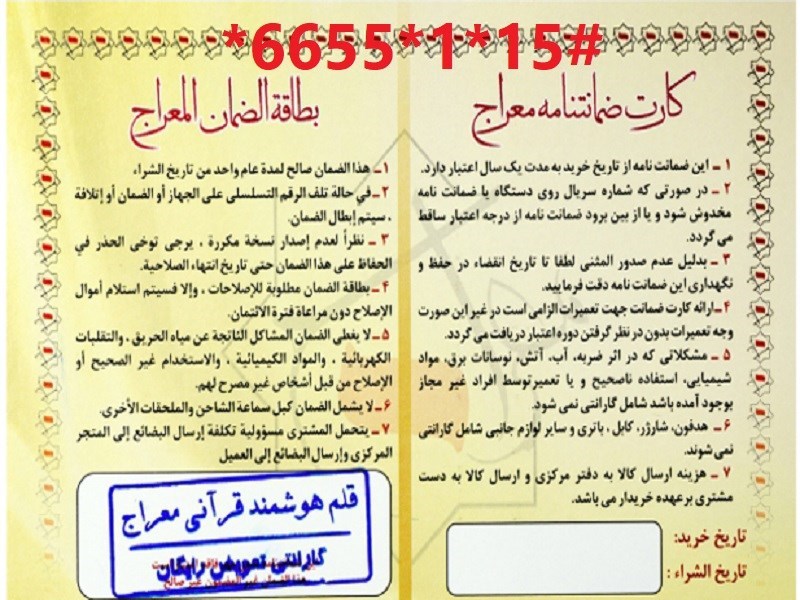 *6655*1*15#
کارت ضمانتنامه معراج
۱ – این ضمانت نامه از تاریخ خرید به مدت یک سال اعتبار دارد.
۲ – در صورتی که شماره سریال روی دستگاه یا ضمانت نامه
مخدوش شود و یا از بین برود ضمانت نامه از درجه اعتبار ساقط
می گردد.
۳ – بدلیل عدم صدور المثنی لطفا تا تاریخ انقضاء در حفظ و
نگهداری این ضمانت نامه دقت فرمایید.
۴– ارائه کارت ضمانت جهت تعمیرات الزامی است در غیر این صورت
وجه تعمیرات بدون در نظر گرفتن دوره اعتبار دریافت می گردد.
۵ – مشکلاتی که در اثر ضربه، آب، آتش، نوسانات برق، مواد
شیمیایی، استفاده ناصحیح و یا تعمیرتوسط افراد غیر مجاز
بوجود آمده باشد شامل گارانتی نمی شود.
۶– هدفون، شارژر، کابل ، باتری و سایر لوازم جانبی شامل گارانتی
نمی شوند.
۷ – هزینه ارسال کالا به دفتر مرکزی و ارسال کالا به دست
مشتری برعهده خریدار می باشد.
تاریخ خرید:
تاريخ الشراء :
بطاقة الضمان المعراج
۱– هذا الضمان صالح لمدة عام واحد من تاريخ الشراء
۲–في حالة تلف الرقم التسلسلى على الجهاز أو الضمان أو إتلافة
، سيتم إبطال الضمان.
۳ – نظراً لعدم إصدار نسخة مكررة ، يرجى توخى الحذر في
الحفاظ على هذا الضمان حتى تاريخ انتهاء الصلاحية.
۴– بطاقة الضمان مطلوبة للإصلاحات ، وإلا فسيتم استلام أموال
الإصلاح دون مراعاة فترة الائتمان.
۵–لا يغطى الضمان المشاكل الناتجة عن مياه الحريق ، والتقلبات
الكهربائية ، والمواد الكيميائية ، والاستخدام غير الصحيح أو
الإصلاح من قبل أشخاص غير مصرح لهم.
۶– لا يشمل الضمان كبل سماعة الشاحن والملحقات الأخرى.
۷– يتحمل المشترى مسؤولية تكلفة إرسال البضائع إلى المتجر
المركزى وإرسال البضائع إلى العميل
قلم هوشمند قرآنی معراج
گارانتی تعویض رایگان